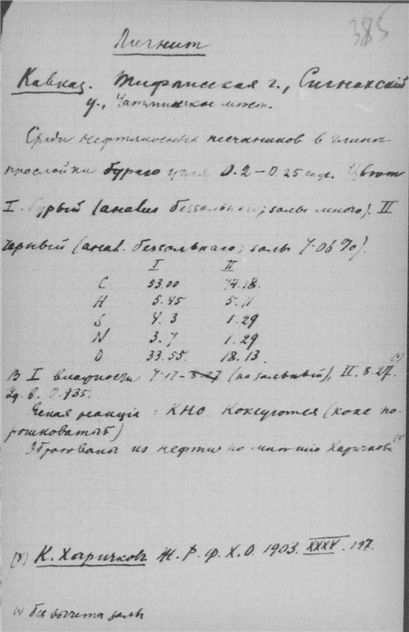 385
Лигнит
Кавказ. Тифлисская г., Сигнахский
у., Чатминское мест.
Среди нефтяносных песчаников и глины
прослойки бураго угля 0.2–0.25 саж. Цвет
I. бурый (анализ беззольнаго; золы много). II
черный (анал. беззольнаго; золы 7.06%).
I II
C 53.00 74.18.
H 5.45 5.11
S 4.3 1.29
N 3.7 1.29
O 33.55. 18.13.
В I влажности 7.17– (на зольный), II. 8.27.
Уд. в. 0.935.
реакция: KHO. Коксуются (кокс по-
рошковатый)
Образованы из нефти по мнению Харичкова
К. Харичковъ Ж. Р. Ф. Х. О. 1903. XXXV. 197.
без расчета золы